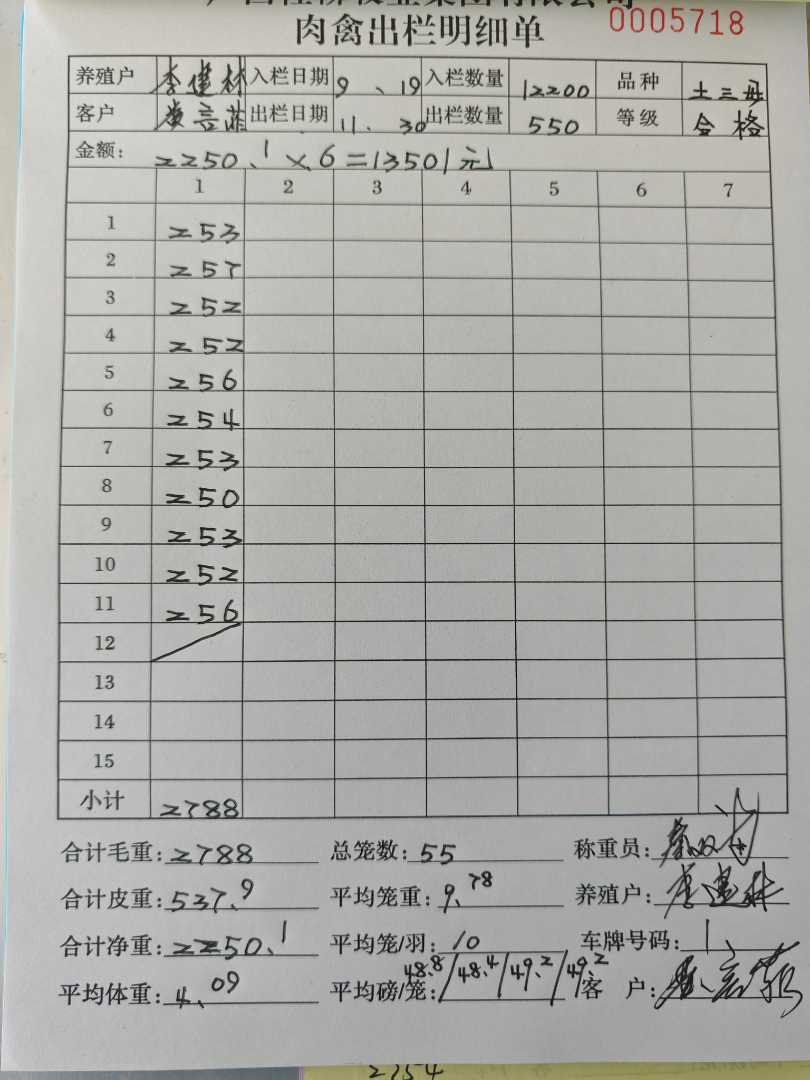 肉禽出栏明细单 0005718
养殖户 李建林 入栏日期 9、19 入栏数量 12200 品种 土三丹
客户 出栏日期 11.30 出栏数量 550 等级 合格
金额: 2250.1×6=13501元
1 2 3 4 5 6 7
1 253
2 257
3 252
4 252
5 256
6 254
7 253
8 250
9 253
10 252
11 256
12
13
14
15
小计 2788
合计毛重: 2788 总笼数: 55 称重员:
合计皮重: 537.9 平均笼重: 9.78 养殖户: 李建林
合计净重: 2250.1 平均笼/羽: 10 车牌号码: 1、
平均体重: 4.09 平均磅/笼: 48.8/48.4/49.2/49.2 客 户:
2754